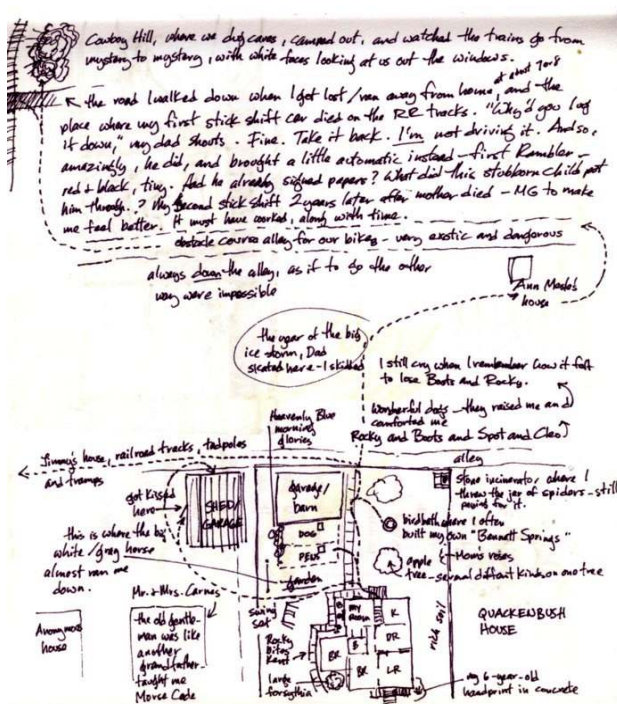 Cowboy Hill, where we dug caves, camped out, and watched the trains go from
mystery to mystery, with white faces looking at us out the windows.
at about 7 or 8
the road I walked down when I got lost/ran away from home, and the
place where my first stick shift car died on the RR tracks. "Why'd you lug
it down," my dad shouts. Fine. Take it back. I'm not driving it. And so,
amazingly, he did, and brought a little automatic instead - first Rambler -
red + black, tiny. And he already signed papers? What did this stubborn child put
him through..? My second stick shift 2 years later after mother died - MG to make
me feel better. It must have worked, along with time.
obstacle course alley for our bikes - very exotic and dangerous
always down the alley, as if to go the other
way were impossible
Ann
house
the year of the big
ice storm, Dad
skated here - I skidded
I still cry when I remember how it felt
to lose Boots and Rocky.
Wonderful dogs - they raised me and
comforted me
Rocky and Boots and Spot and Cleo
Heavenly Blue
morning
glories
alley
Jimmy's house, railroad tracks, tadpoles
and tramps
got kissed
here
SHED/
GARAGE
garage/
barn
DOG
PENS
garden
stone incinerator where I
threw the jar of spiders - still
paying for it.
birdbath where I often
built my own "Bennett Springs"
Mom's roses
apple
tree - several different kinds on one tree
this is where the big
white/grey horse
almost ran me
down.
Mr. + Mrs. Carnes
Anonymous
house
the old gentle-
man was like
another
grandfather -
taught me
Morse Code
swing
set
Rocky
bites
Kent
large
forsythia
MY
ROOM
K
DR
B
BR
BR
LR
rich soil
QUACKENBUSH
HOUSE
my 6-year-old
handprint in concrete